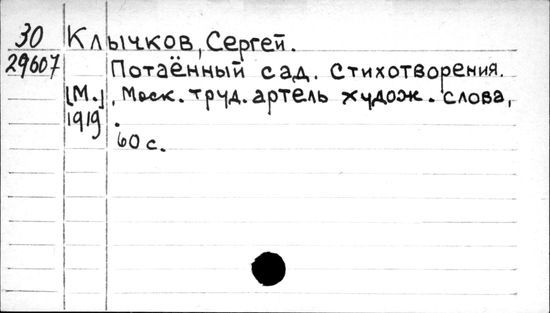 30 Клычков, Сергей.
29607 Потаённый сад. Стихотворения.
[М.], Моск. труд. артель худож. слова,
1919.
60 с.